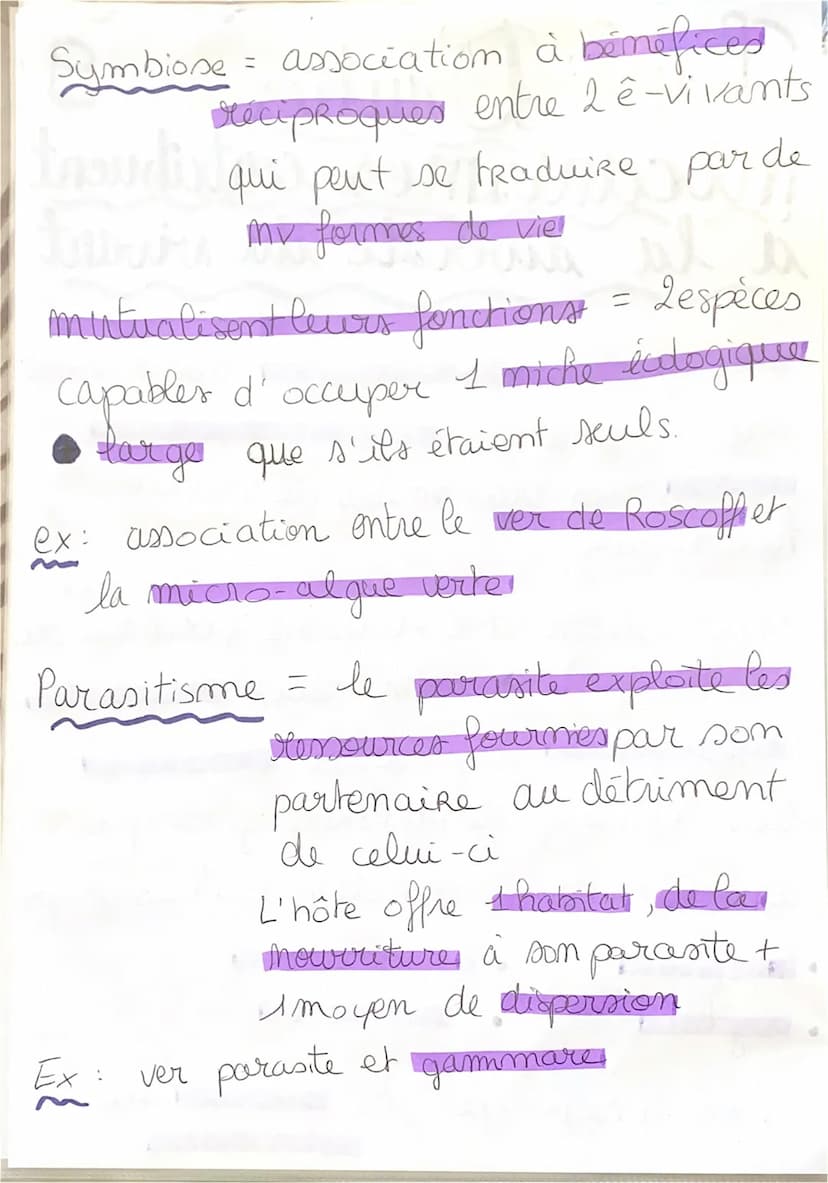 Symbiose = association à bénéfices
réciproques entre 2 ê-vivants
qui peut se traduire par de
nv formes de vie
mutualisent leurs fonctions = 2 espèces
capables d'occuper 1 niche écologique
large que s'ils étaient seuls.
ex : association entre le ver de Roscoff et
la micro-algue verte
Parasitisme = le parasite exploite les
ressources fournies par son
partenaire au détriment
de celui-ci
L'hôte offre 1 habitat, de la
nourriture à son parasite +
1 moyen de dispersion
Ex : ver parasite et gammare